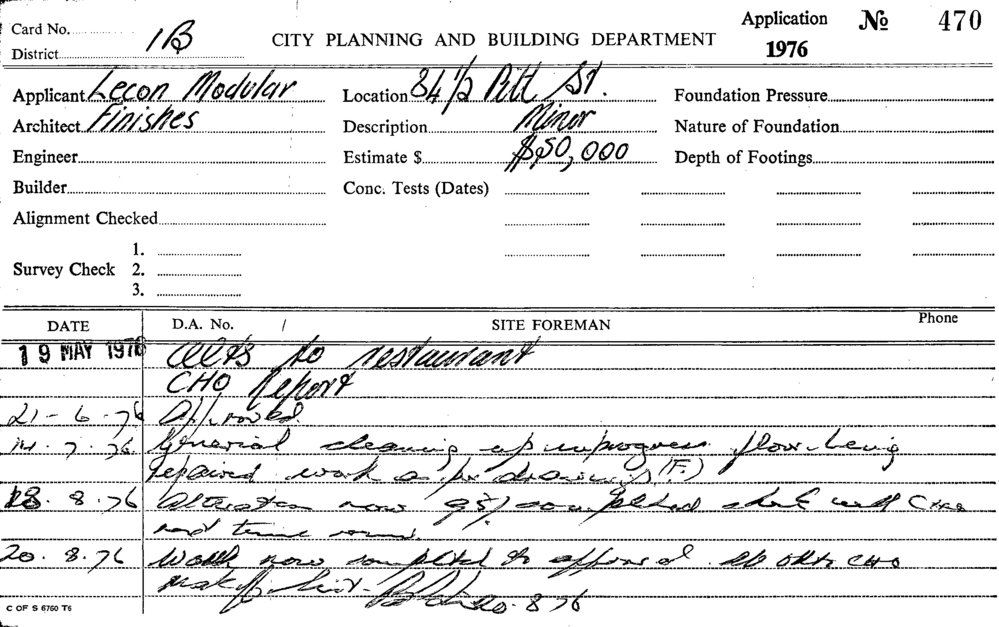 Card No. 1B
District
CITY PLANNING AND BUILDING DEPARTMENT
Application № 470
1976
Applicant Lecon Modular
Architect Finishes
Engineer
Builder
Alignment Checked
Survey Check
1.
2.
3.
Location 84 1/2 Pitt St.
Description Minor
Estimate $ $50,000
Conc. Tests (Dates)
Foundation Pressure
Nature of Foundation
Depth of Footings
DATE D.A. No. SITE FOREMAN Phone
19 MAY 1976 to restaurant
CHO Report
21-6-76 Approved.
14.7.76. General cleaning up in progress floor being
repaired work as per drawings (F.)
18.8.76 Alteration now 95% completed check with
next time round
20.8.76 Work now completed to approval CHO
20.8.76
C OF S 6760 T6